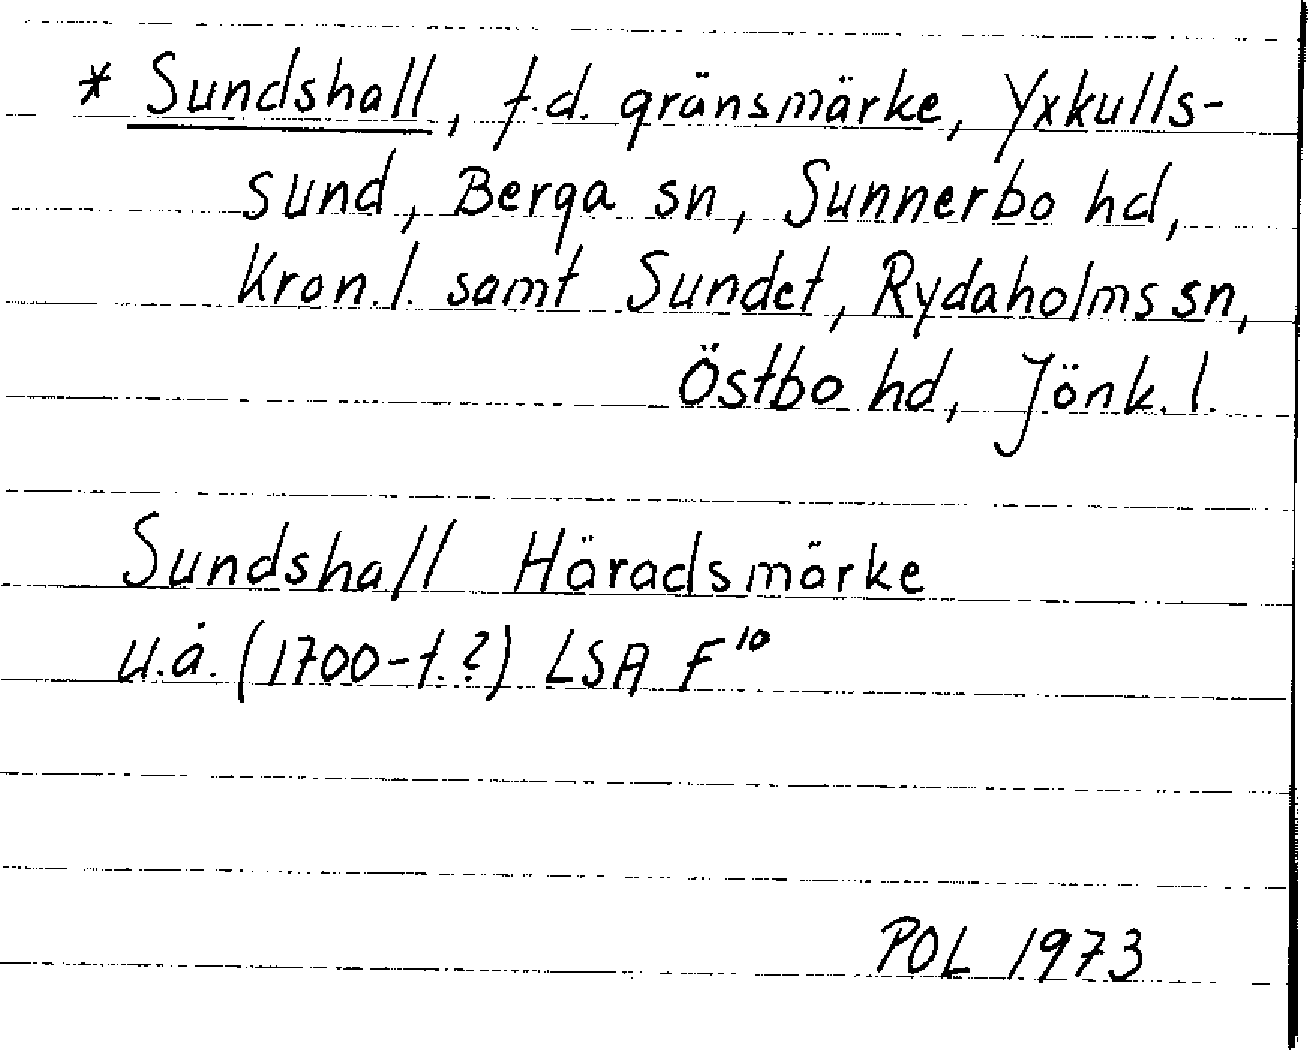 * Sundshall, f.d. gränsmärke, Yxkulls-
sund, Berga sn, Sunnerbo hd,
Kron. l. samt Sundet, Rydaholms sn,
Östbo hd, Jönk. l.
Sundshall Häradsmärke
u.å. (1700-t.?) LSA F¹⁰
POL 1973